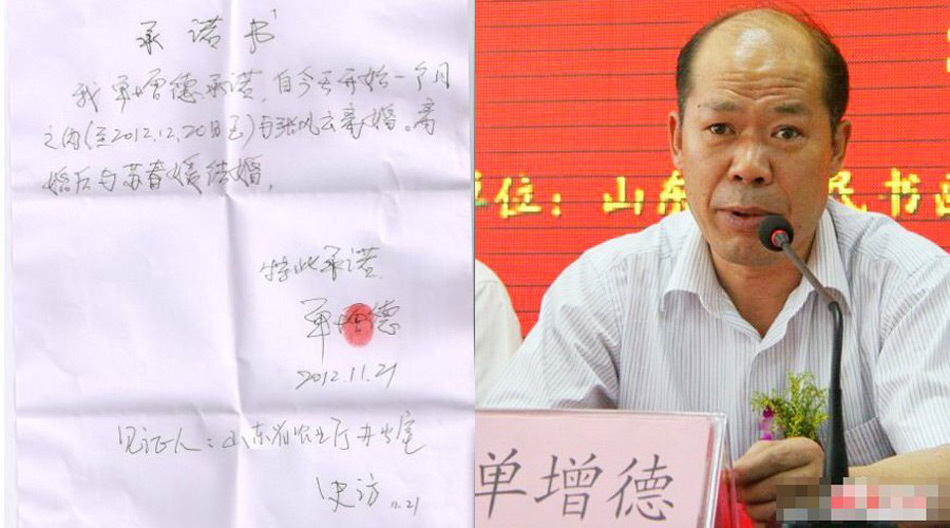 承诺书
我单增德承诺,自今天开始一个月
之内(至2012.12.20日止)与张风云离婚。离
婚后与苏春媛结婚,
特此承诺
单增德
2012.11.21
见证人:山东省农业厅办公室
史访 11.21
单位:山东
民书画
单增德